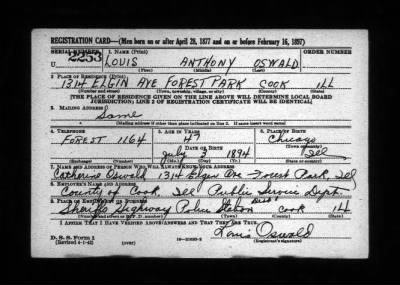 REGISTRATION CARD—(Men born on or after April 28, 1877 and on or before February 16, 1897)
SERIAL NUMBER 1. NAME (Print) ORDER NUMBER
U 2253 LOUIS ANTHONY OSWALD
(First) (Middle) (Last)
2. PLACE OF RESIDENCE (Print)
1314 ELGIN AVE FOREST PARK COOK ILL
(Number and street) (Town, township, village, or city) (County) (State)
[THE PLACE OF RESIDENCE GIVEN ON THE LINE ABOVE WILL DETERMINE LOCAL BOARD
JURISDICTION; LINE 2 OF REGISTRATION CERTIFICATE WILL BE IDENTICAL]
3. MAILING ADDRESS
Same
[Mailing address if other than place indicated on line 2. If same insert word same]
4. TELEPHONE 5. AGE IN YEARS 6. PLACE OF BIRTH
FOREST 1164 47 Chicago
DATE OF BIRTH (Town or county)
July 3 1894 Ill
(Exchange) (Number) (Mo.) (Day) (Yr.) (State or country)
7. NAME AND ADDRESS OF PERSON WHO WILL ALWAYS KNOW YOUR ADDRESS
Catherine Oswald 1314 Elgin Ave Forest Park, Ill
8. EMPLOYER'S NAME AND ADDRESS
County of Cook, Ill Public Service Dept.
9. PLACE OF EMPLOYMENT OR BUSINESS
Sheriffs Highway Police Station COOK ILL
(Number and street or R. F. D. number) (Town) (County) (State)
I AFFIRM THAT I HAVE VERIFIED ABOVE ANSWERS AND THAT THEY ARE TRUE.
D. S. S. FORM 1 Louis Oswald
(Revised 4-1-42) (over) (Registrant's signature)